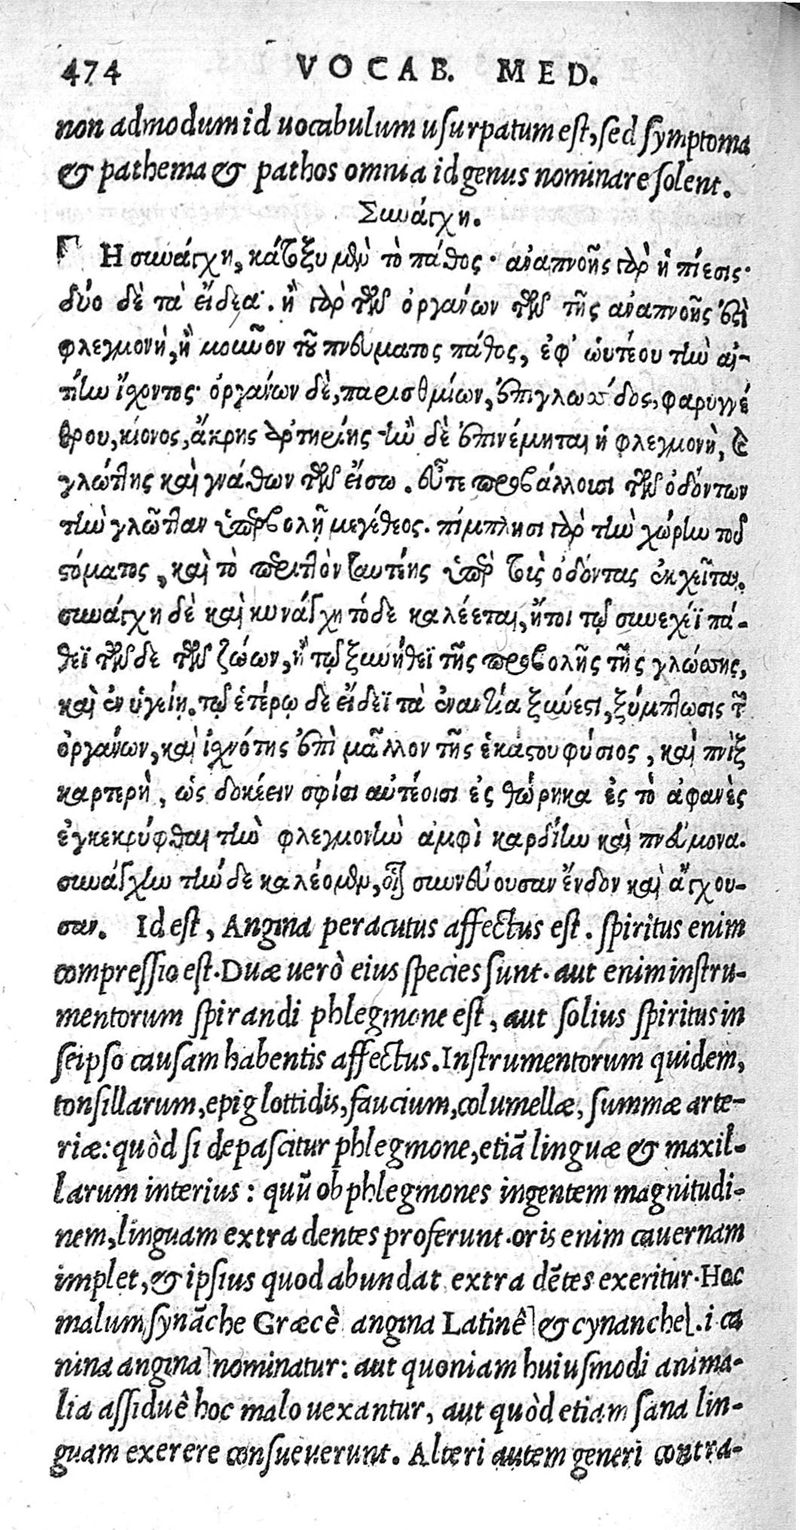 474 VOCAB. MED.
non admodum id uocabulum usurpatum est, sed symptoma
& pathema & pathos omnia id genus nominare solent.
Συνάγχη.
Η συνάγχη, κάτοξυ μὲν τὸ πάθος· ἀναπνοῆς γὰρ ἡ πίεσις·
δύο δὲ τὰ εἴδεα· ἢ γὰρ τῶν ὀργάνων τῶν τῆς ἀναπνοῆς ἐστὶ
φλεγμονὴ, ἢ μοῦνον τοῦ πνεύματος πάθος, ἐφ' ὡυτέου τὴν αἰ-
τίην ἴχοντος· ὀργάνων δὲ, παρισθμίων, ἐπιγλωττίδος, φαρυγγέ
θρου, κίονος, ἄκρης ἀρτηρίης· ἢν δὲ ἐπινέμηται ἡ φλεγμονὴ, καὶ
γλώττης καὶ γνάθων τῶν εἴσω. εὖτε προβάλλουσι τῶν ὀδόντων
τὴν γλῶτταν ὑπερβολῇ μεγέθεος. πίμπλησι γὰρ τὴν χώρην τοῦ
στόματος, καὶ τὸ περιττὸν ταυτέης ὑπὲρ τοὺς ὀδόντας ἐκχεῖται.
συνάγχη δὲ καὶ κυνάγχη τόδε καλέεται, ἤτοι τῷ συνεχέϊ πά-
θεϊ τῶνδε τῶν ζώων, ἢ τῷ ξυνήθεϊ τῆς προβολῆς τῆς γλώσσης,
καὶ ἐν ὑγιείῃ. τῷ ἑτέρῳ δὲ εἴδεϊ τὰ ἐναντία ξύνεστι, ξύμπτωσις τῶν
ὀργάνων, καὶ ἰσχνότης ἐπὶ μᾶλλον τῆς ἑκάστου φύσιος, καὶ πνὶξ
καρτερὴ, ὡς δοκέειν σφίσι αὐτέοισι ἐς θώρηκα ἐς τὸ ἀφανὲς
ἐγκεκρύφθαι τὴν φλεγμονὴν ἀμφὶ καρδίην καὶ πνεύμονα.
συνάγχην τήνδε καλέομεν, οἷον συννεύουσαν ἔνδον καὶ ἄγχου-
σαν. Id est, Angina peracutus affectus est. spiritus enim
compressio est. Duæ uerò eius species sunt. aut enim instru-
mentorum spirandi phlegmone est, aut solius spiritus in
seipso causam habentis affectus. Instrumentorum quidem,
tonsillarum, epiglottidis, faucium, columellæ, summæ arte-
riæ: quòd si depascitur phlegmone, etiā linguæ & maxil-
larum interius: quū ob phlegmones ingentem magnitudi-
nem, linguam extra dentes proferunt. oris enim cauernam
implet, & ipsius quod abundat extra dētes exeritur. Hoc
malum, synāche Græcè angina Latinè & cynanche .i. ca
nina angina nominatur: aut quoniam huiusmodi anima-
lia assiduè hoc malo uexantur, aut quòd etiam sana lin-
guam exerere consueuerunt. Alteri autem generi contra-